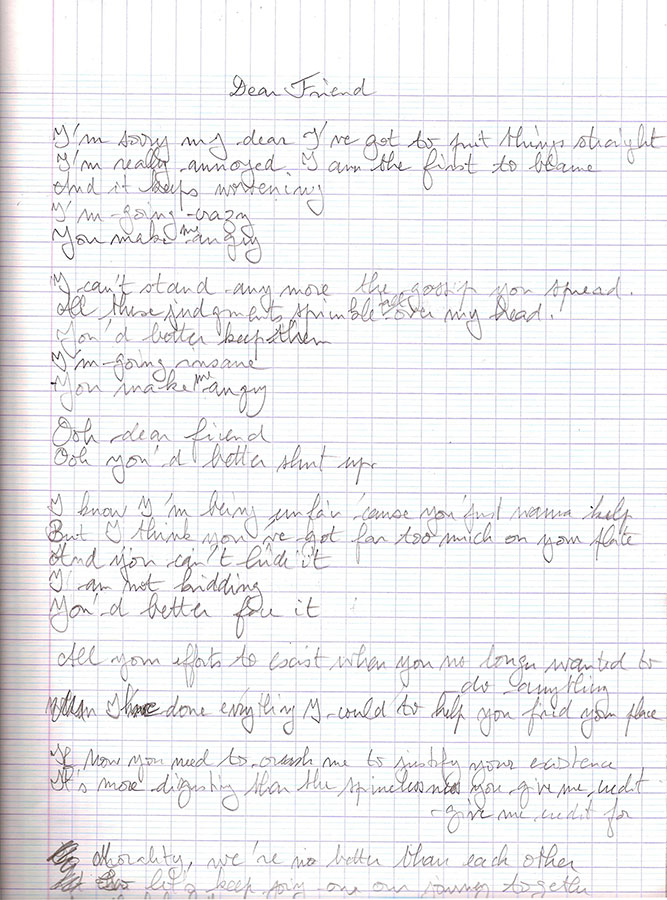 Dear Friend
I'm sorry my dear I've got to put things straight
I'm really annoyed. I am the first to blame
And it keeps worsening
I'm going crazy
You make me angry
I can't stand any more the gossip you spread.
All these judgments sprinkle all over my head.
You'd better keep them
I'm going insane
You make me angry
Ooh dear friend
Ooh you'd better shut up.
I know I'm being unfair 'cause you just wanna help
But I think you've got far too much on your plate
And you can't hide it
I am not kidding
You'd better face it
All your efforts to exist when you no longer wanted to
do anything
When I have done everything I could to help you find your place
If now you need to crush me to justify your existence
It's more disgusting than the spinelessness you give me credit
give me credit for
Morality, we're no better than each other
let's keep going our journey together